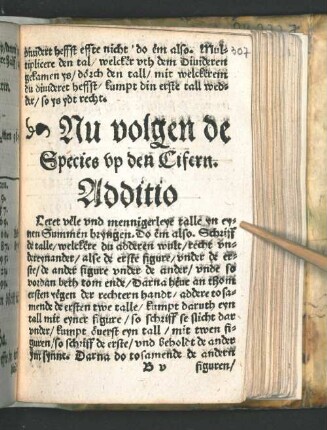 diuideret heffst effte nicht / do ëm also. Mul-
tiplicere den tal / welcker vth dem Diuideren
gekamen ys / dörch den tall / mit welckerem
du diuideret heffst / kumpt din erste tall wed-
der / so ys ydt recht.
307
Nu volgen de
Species vp den Cifern.
Additio
Leret vële vnd mennigerleye talle in ey-
nen Summen bryngen. Do ëm also. Schriff
de talle / welckere du adderen wult / recht vn-
dereynander / alse de erste figure / vnder de er-
ste / de ander figure vnder de ander / vnde so
vordan beth tom ende / Darna heue an thom
ersten yegen der rechtern handt / addere tosa-
mende de ersten twe talle / kumpt daruth eyn
tall mit eyner figure / so schriff se slicht dar
vnder / kumpt öuerst eyn tall / mit twen fi-
guren / so schriff de erste / vnd beholdt de ander
im synne. Darna do tosamende de andern
B v figuren /